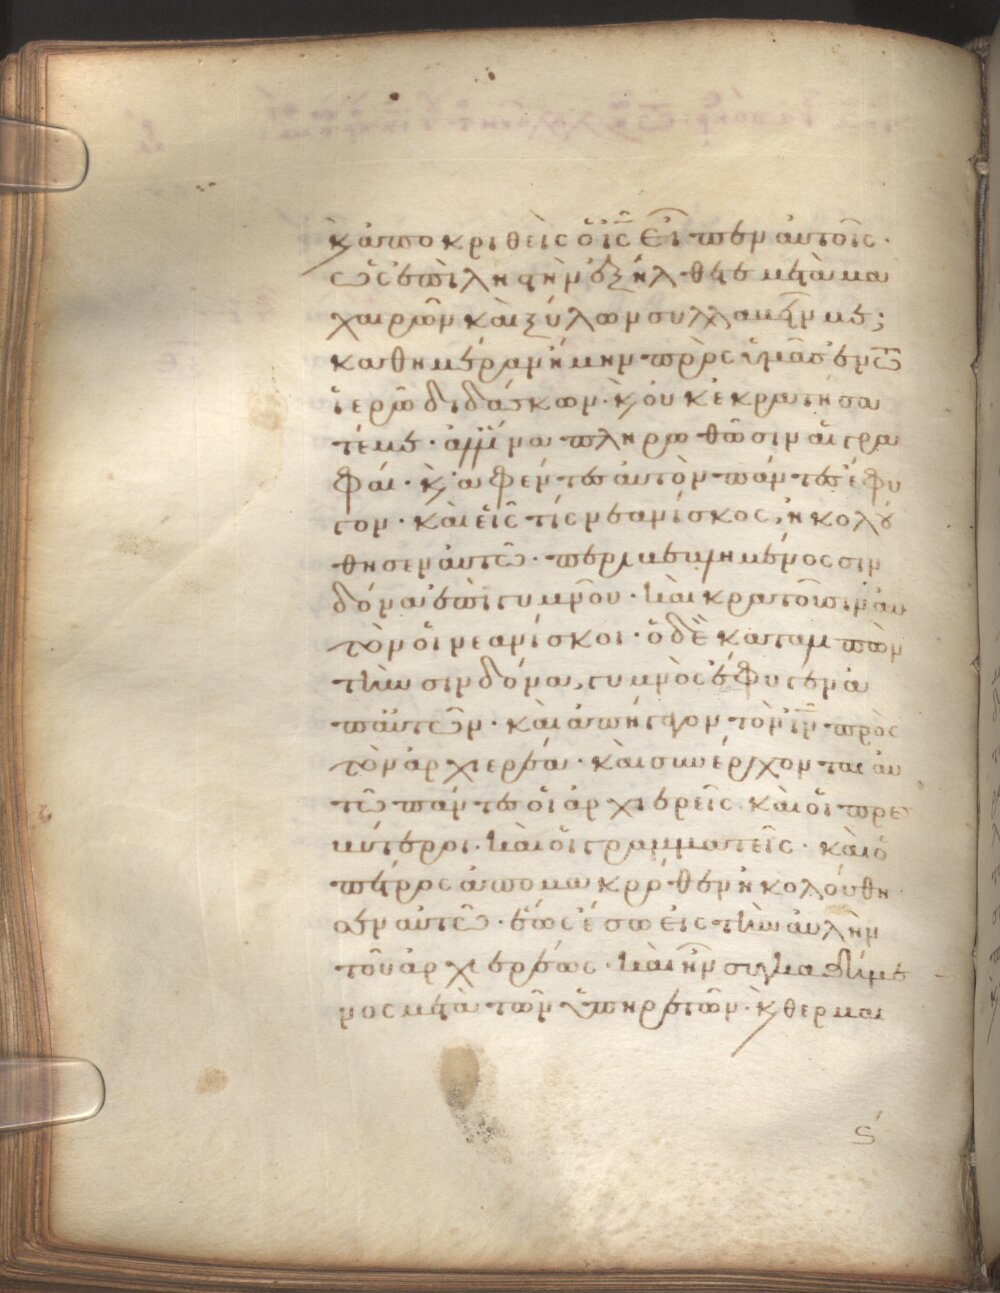 κ ἀποκριθεὶς ὁ ις εἶπεν αὐτοῖς·
ὡς ἐπὶ ληστὴν ἐξήλθετε μετὰ μα
χαιρῶν καὶ ξύλων συλλαβεῖν με;
καθημέραν ἤμην πρὸς ὑμᾶς ἐν τῶ
ἱερῶ διδάσκων· κ οὐκ ἐκρατήσα
τέ με· ἀλλ' ἵνα πληρωθῶσιν αἱ γρα
φαί· κ ἀφέντες αὐτὸν πάντες ἔφυ
γον· καὶ εἷς τίς νεανίσκος, ἠκολού
θησεν αὐτῶ· περιβεβλημένος σιν
δόνα ἐπὶ γυμνοῦ· καὶ κρατοῦσιν αυ
τὸν οἱ νεανίσκοι· ὁ δὲ καταλιπὼν
τὴν σινδόνα, γυμνὸς ἔφυγεν ἀ
π' αὐτῶν· καὶ ἀπήγαγον τὸν ιν πρὸς
τὸν ἀρχιερέα· καὶ συνέρχονται αὐ
τῶ πάντες οἱ ἀρχιερεῖς καὶ οἱ πρε
σβύτεροι· καὶ οἱ γραμματεῖς· καὶ ὁ
πέτρος ἀπο μακρόθεν ἠκολούθη
σεν αὐτῶ· ἕως ἔσω εἰς τὴν αὐλὴν
τοῦ ἀρχιερέως· καὶ ἦν συγκαθήμε
νος μετὰ τῶν ὑπηρετῶν· κ θερμαι
ς´